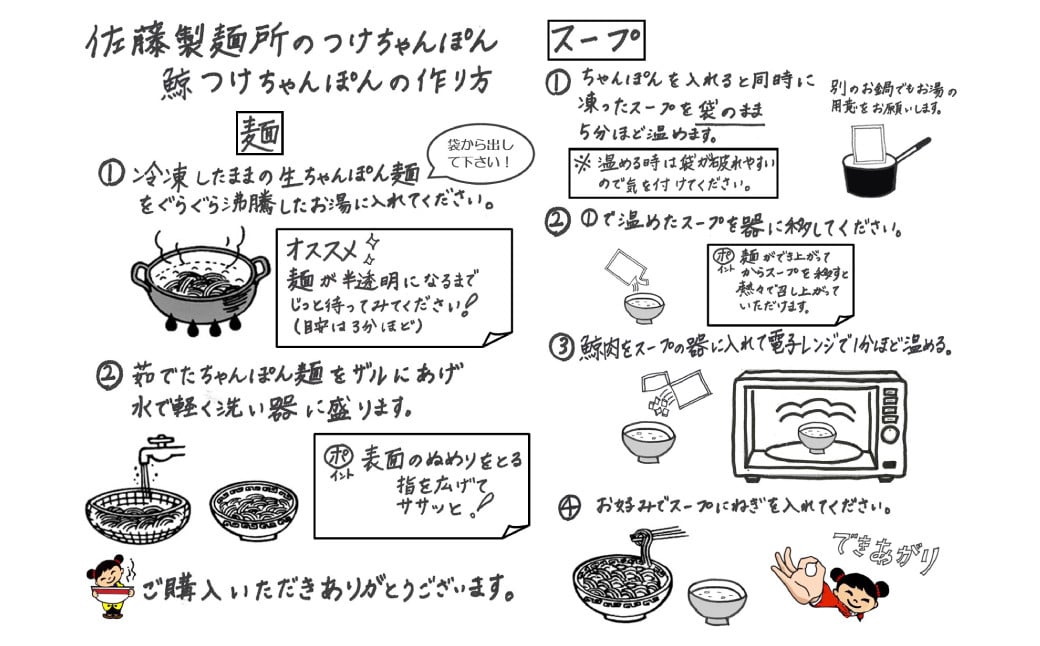 佐藤製麺所のつけちゃんぽん
鯨つけちゃんぽんの作り方
麺
袋から出し
て下さい！
① 冷凍したままの生ちゃんぽん麺
をぐらぐら沸騰したお湯に入れてください。
オススメ
麺が半透明になるまで
じっと待ってみてください!
(目安は3分ほど)
② 茹でたちゃんぽん麺をザルにあげ
水で軽く洗い器に盛ります。
ポイント 表面のぬめりをとる
指を広げて
ササッと!
ご購入いただきありがとうございます。
スープ
① ちゃんぽんを入れると同時に
凍ったスープを袋のまま
5分ほど温めます。
別のお鍋でもお湯の
用意をお願いします。
※ 温める時は袋が破れやすい
ので気を付けてください。
② ①で温めたスープを器に移してください。
ポイント 麺ができ上がって
からスープを移すと
熱々で召し上がって
いただけます。
③ 鯨肉をスープの器に入れて電子レンジで1分ほど温める。
④ お好みでスープにねぎを入れてください。
できあがり